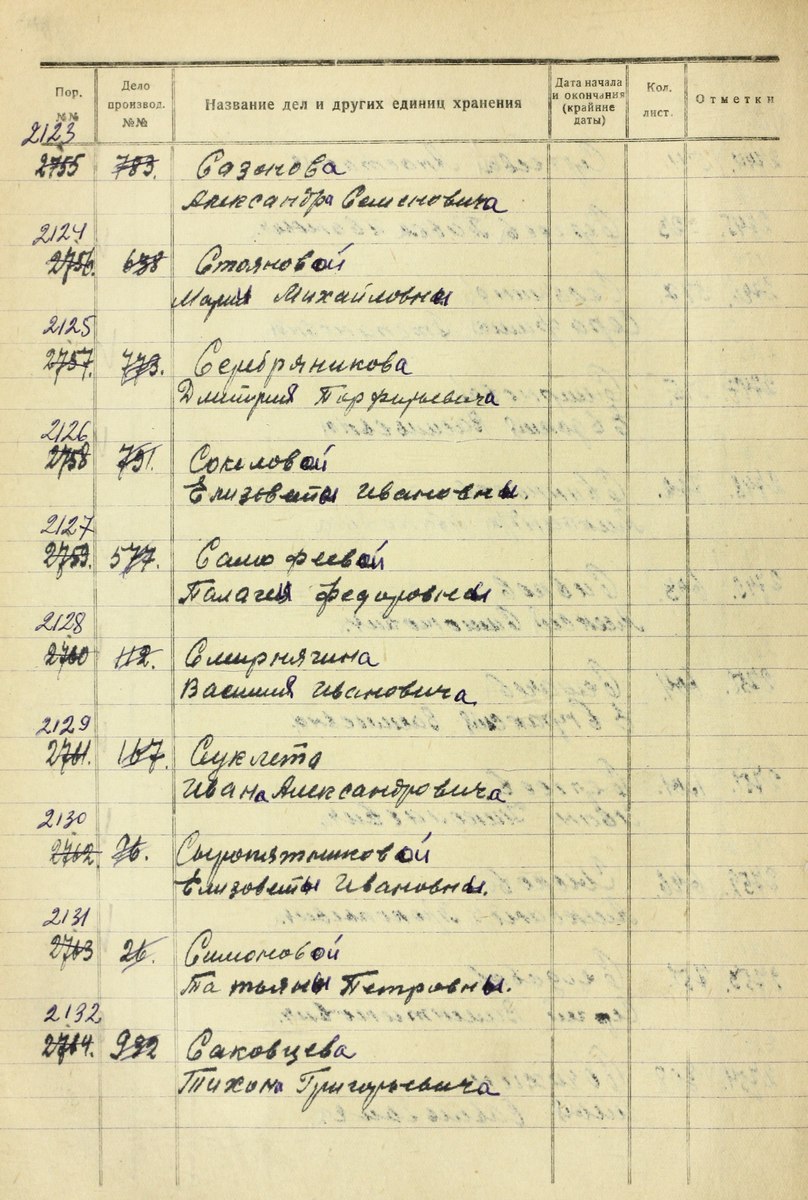 Пор. №№
Дело производ. №№
Название дел и других единиц хранения
Дата начала и окончания (крайние даты)
Кол. лист.
Отметки
2123
2755 783. Сазонова
Александра Семеновича
2124
2756. 638 Стояновой
Марии Михайловны
2125
2757. 773. Серебряникова
Дмитрия Парфирьевича
2126
2758 751. Соколовой
Елизоветы Ивановны.
2127
2759. 577. Самофеевой
Палагеи Федоровны
2128
2760 112. Смирнягина
Василия Ивановича
2129
2761. 167. Суклета
Ивана Александровича
2130
2762. 76. Сыропятниковой
Елизоветы Ивановны.
2131
2763 26. Симоновой
Татьяны Петровны.
2132
2764. 932 Саковцева
Тихона Григорьевича